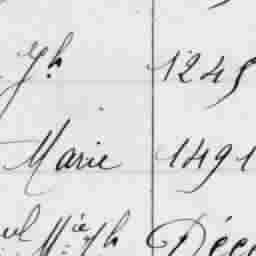 Jh 1245
Marie 1491
Mie Jh Déc